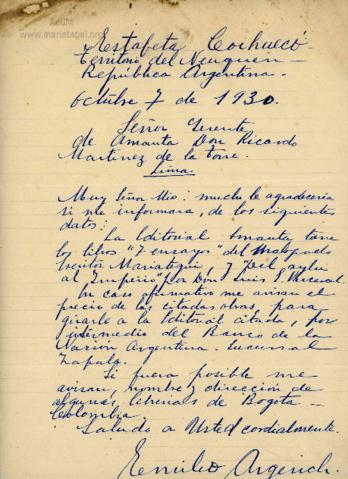 AeJM
www.mariategui.org
Estafeta Cochuecó
Territorio del Neuquen —
República Argentina.
Octubre 7 de 1930.
Señor Gerente
de Amauta Don Ricardo
Martinez de la Torre.
Lima.
Muy Señor Mio: mucho le agradeceria
si me informara, de los siguientes
datos:
La Editorial Amauta tiene
los libros "7 ensayos" del Malogrado
escritor Mariategui, y Del ayllu
al Imperio por Don Luis E. Valcarcel.
En caso afirmativo me avisan el
precio de las citadas obras, para
girarle a la Editorial citada, por
intermedio del Banco de la
Nación Argentina. Sucursal
Zapala.
Si fuera posible me
avisan, nombre y dirección de
algunas librerias de Bogota —
Colombia.
Saludo a Usted cordialmente.
Emilio Argerich.